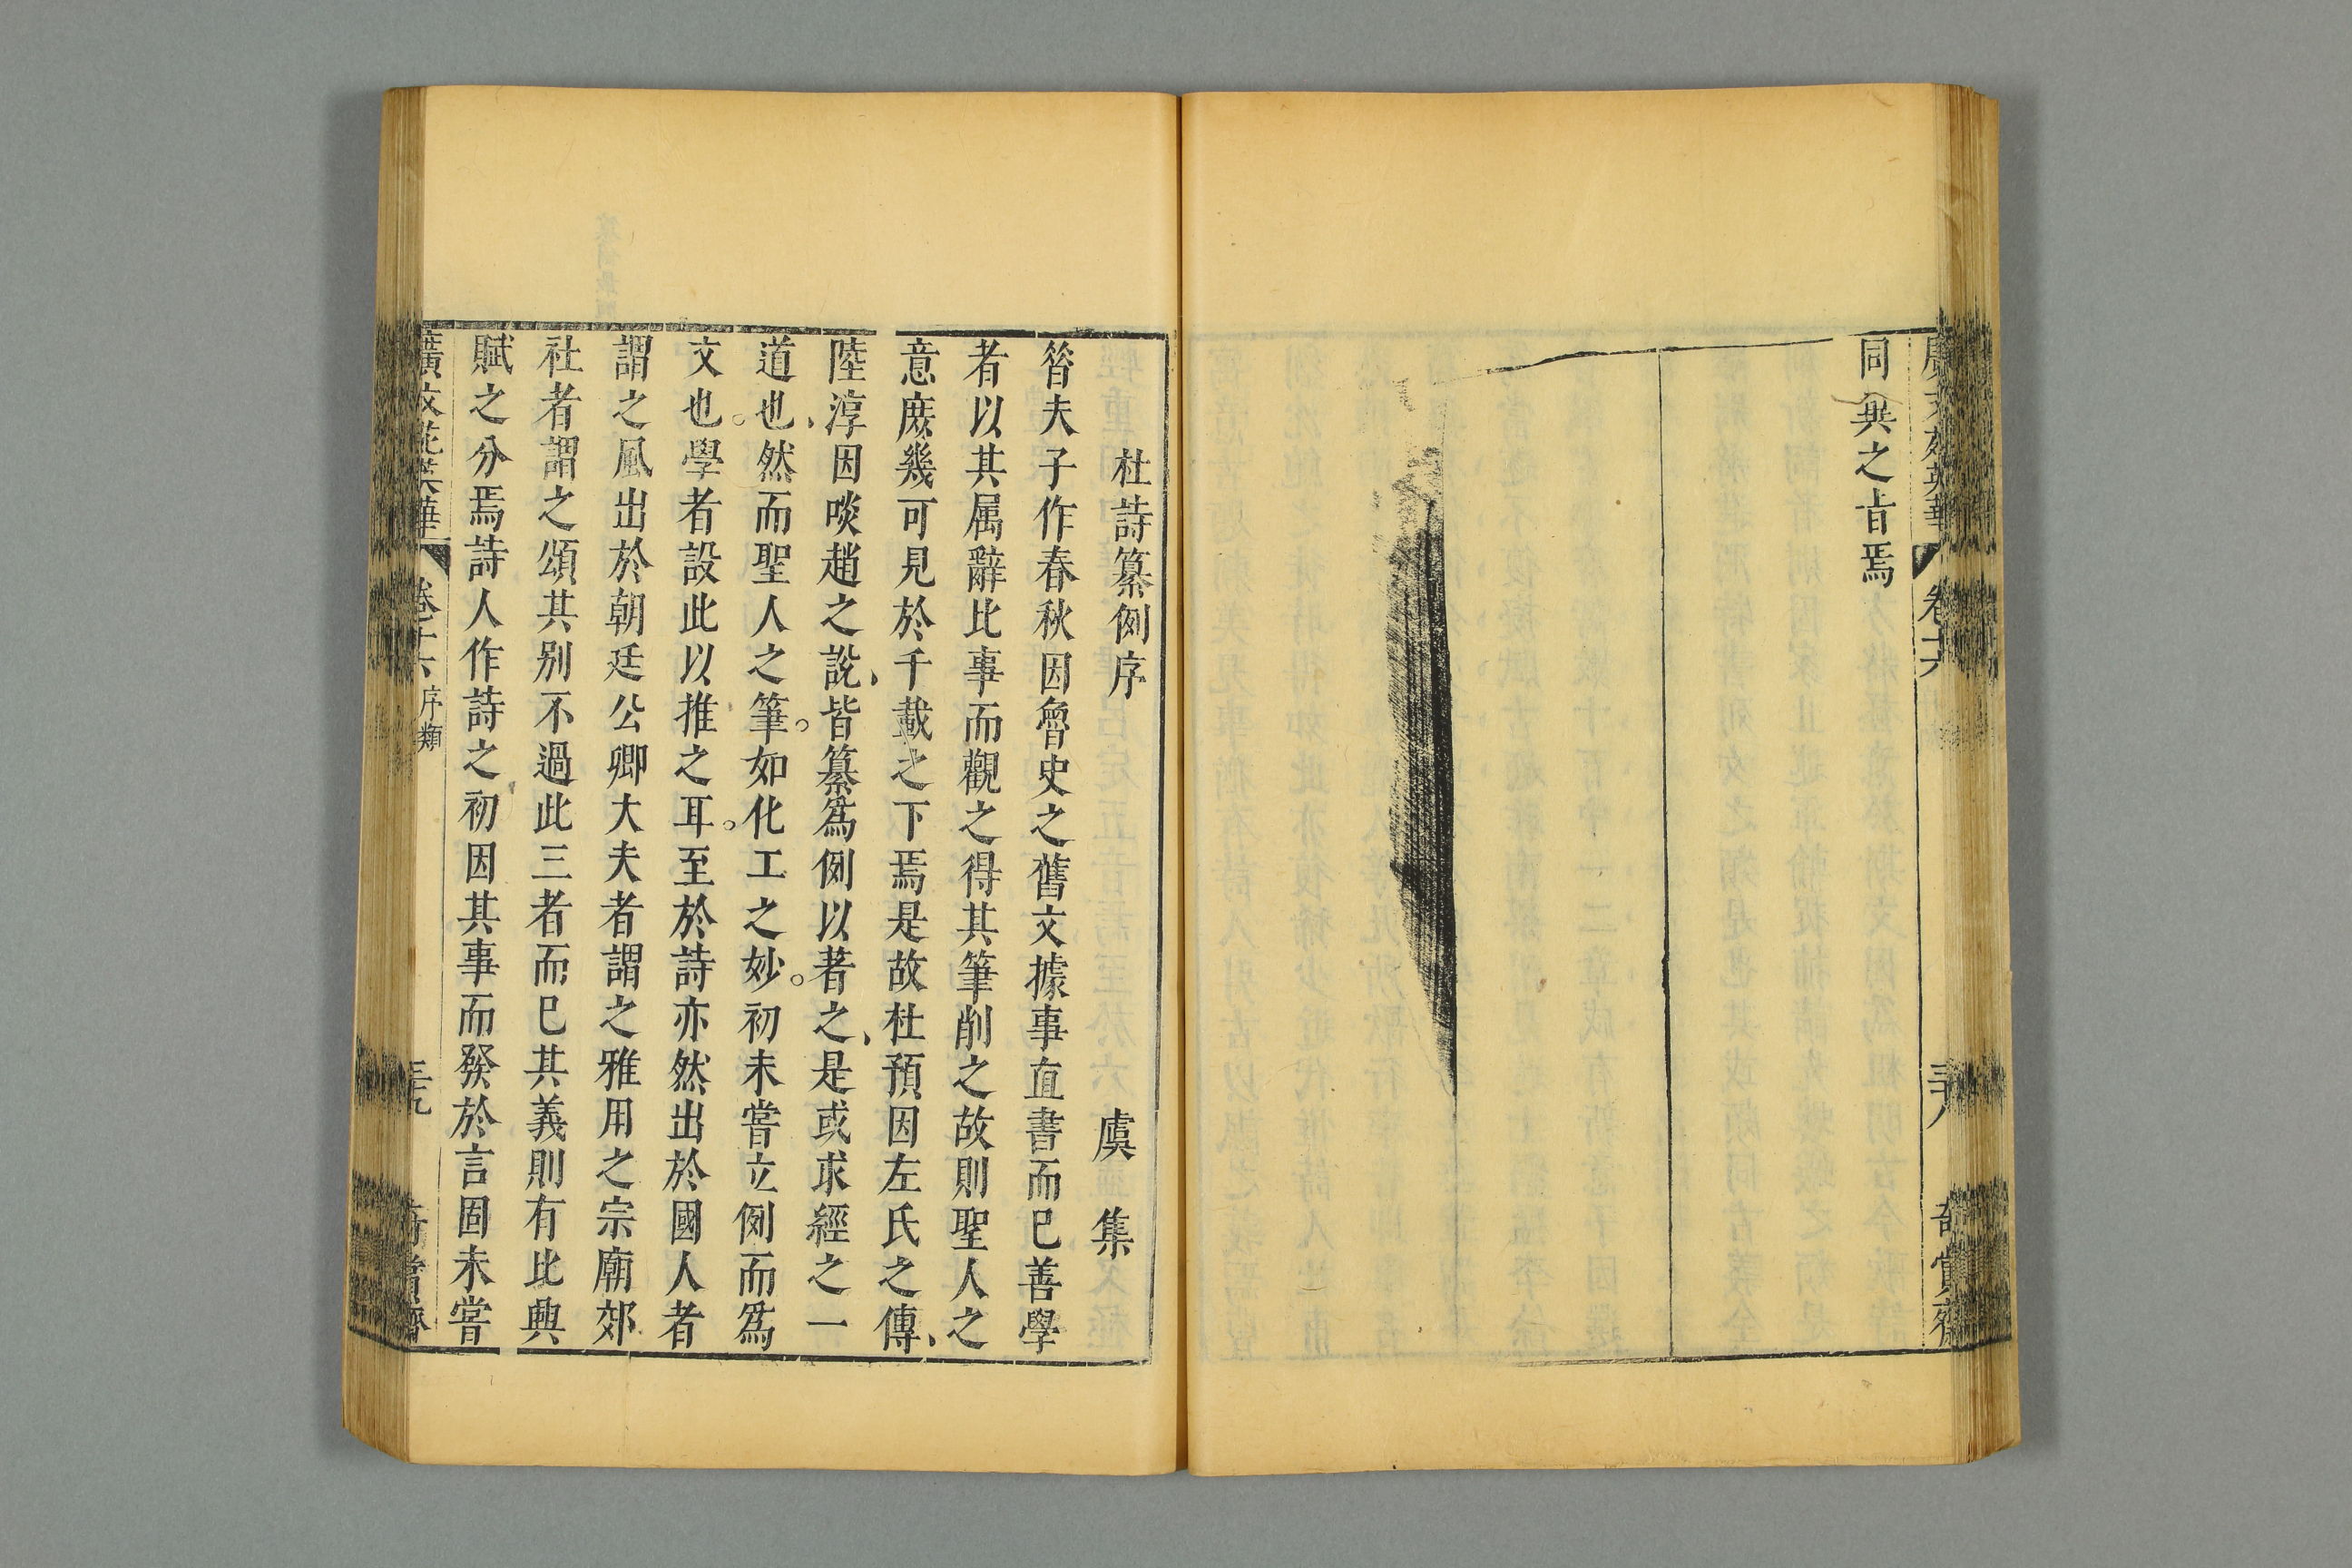 廣文苑英華 卷十六 三十八 奇賞齋
同異之㫖焉
杜詩纂例序 虞集
昝夫子作春秋因魯史之舊文據事直書而已善學
者以其属辭比事而觀之得其筆削之故則聖人之
意庶幾可見於千載之下焉是故杜預因左氏之傳、
陸淳因啖趙之說、皆纂爲例以著之、是或求經之一
道也、然而聖人之筆。如化工之妙。初未嘗立例而爲
文也。學者設此以推之耳。至於詩亦然出於國人者
謂之風出於朝廷公卿大夫者謂之雅用之宗廟郊
社者謂之頌其别不過此三者而已其義則有比興
賦之分焉詩人作詩之初因其事而發於言固未嘗
廣文苑英華 卷十六 序類 三十九 奇賞齋